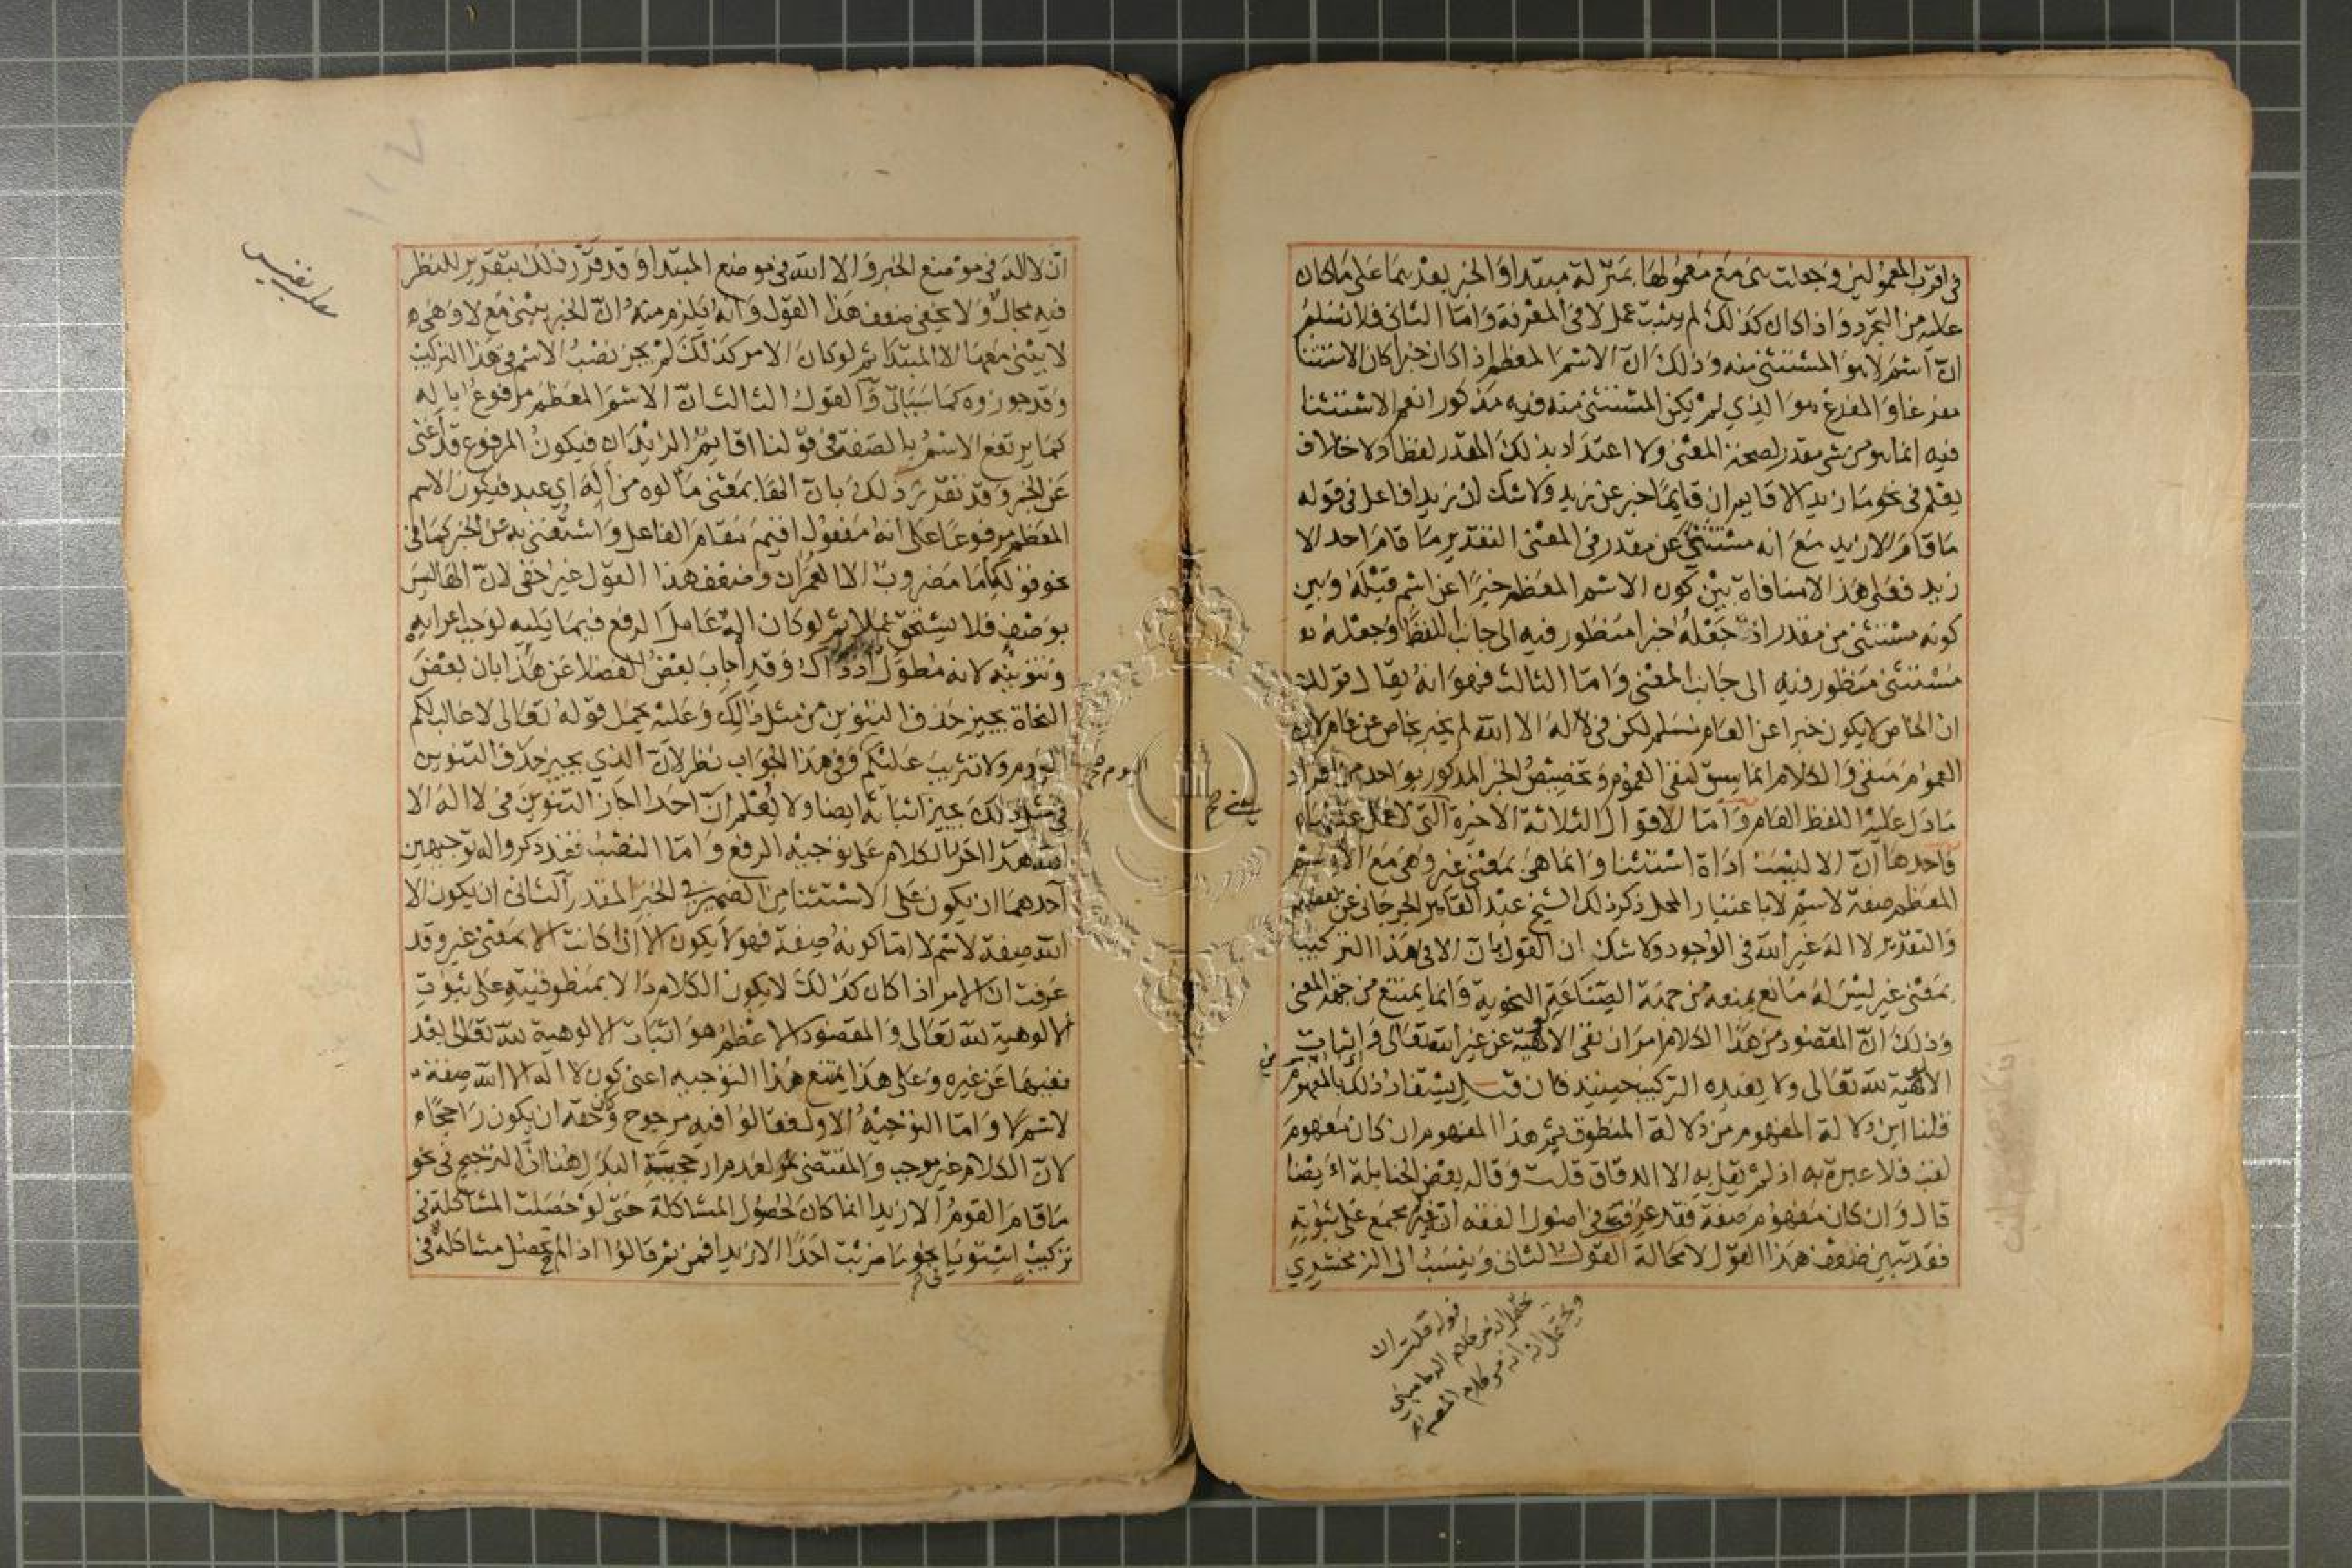 في اقرب المعمولين وجعلت هي مع معمولها بمنزلة مبتدا والخبر بعدهما على ما كان
عليه من التجرد واذا كان كذلك لم يثبت عمل لا في المعرفة واما الثاني فلا نسلم
ان اسم لا هو المستثنى منه وذلك ان الاسم المعظم اذا كان خبرا كان الاستثنا
مفرغا والمفرغ هو الذي لم يكن المستثنى منه فيه مذكورا نعم الاستثنا
فيه انما هو من شي مقدر لصحة المعنى ولا اعتداد بذلك المقدر لفظا ولا خلاف
يعلم في نحو ما زيد الا قايم ان قايما خبر عن زيد ولا شك ان زيدا فاعل في قوله
ما قام الا زيد مع انه مستثنى عن مقدر في المعنى التقدير ما قام احد الا
زيد فعلى هذا لا منافاة بين كون الاسم المعظم خبرا عن اسم قبله وبين
كونه مستثنى من مقدر اذ جعله خبرا منظور فيه الى جانب اللفظ وجعله
مستثنى منظور فيه الى جانب المعنى واما الثالث فهو انه يقال قولك
ان الخاص لا يكون خبرا عن العام مسلم لكن في لا اله الا الله لم يخبر بخاص عن عام لان
العموم منفي والكلام انما سيق لنفي العموم وتخصيص الخبر المذكور بواحد من افراد
ما دل عليه اللفظ العام واما الاقوال الثلاثة الاخيرة التي لا عمل عليها
فاحدها ان الا ليست اداة استثنا وانما هي بمعنى غير وهي مع الاسم
المعظم صفة لاسم لا باعتبار المحل ذكر ذلك الشيخ عبد القاهر الجرجاني عن بعضهم
والتقدير لا اله غير الله في الوجود ولا شك ان القول بان الا في هذا التركيب
بمعنى غير ليس له مانع يمنعه من جهة الصناعة النحوية وانما يمتنع من جهة المعنى
وذلك ان المقصود من هذا الكلام امران نفي الالهية عن غير الله تعالى واثبات
الالهية لله تعالى ولا يفيده التركيب حينيذ فان قيل يستفاد ذلك بالمفهوم
قلنا اين دلالة المفهوم من دلالة المنطوق ثم هذا المفهوم ان كان مفهوم
لقب فلا عبرة به اذ لم يقل به الا الدقاق قلت وقال به بعض الحنابلة ايضا
قال وان كان مفهوم صفة فقد عرفت في اصول الفقه انه غير مجمع على ثبوته
فقد تبين ضعف هذا القول لا محالة القول الثاني وينسب الى الزمخشري
قوله قلت
يحتمل انه من كلام الدماميني
ويحتمل انه من كلام المصم
ان لا اله في موضع الخبر والا الله في موضع المبتدا وقد قرر ذلك بتقدير للنظر
فيه مجال ولا يخفى ضعف هذا القول وانه يلزم منه ان الخبر يبنى مع لا وهي
لا يبنى معها الا المبتدا ثم لو كان الامر كذلك لم يجز نصب الاسم في هذا التركيب
وقد جوزوه كما سياتي والقول الثالث ان الاسم المعظم مرفوع باله
كما يرتفع الاسم بالصفة في قولنا اقايم الزيدان فيكون المرفوع قد اغنى
عن الخبر وقد تقدير ذلك بان الها بمعنى مالوه من اله اي عبد فيكون الاسم
المعظم مرفوعا على انه مفعول اقيم مقام الفاعل واستغنى به عن الخبر كما في
نحو قولك ما مضروب الا العمران وضعف هذا القول غير خفي لان الها ليس
بوصف فلا يستحق عملا ثم لو كان اله عاملا الرفع فيما يليه لوجب اعرابه
وتنوينه لانه مطول اذ ذاك وقد اجاب بعض الفضلا عن هذا بان بعض
النحاة يجيز حذف التنوين من مثل ذلك وعليه يحمل قوله تعالى لا غالب لكم
اليوم ولا تثريب عليكم وفي هذا الجواب نظر لان الذي يجيز حذف التنوين
في مثل ذلك يجيز اثباته ايضا ولا يعلم ان احدا اجاز التنوين في لا اله الا
الله هذا اخر الكلام على توجيه الرفع واما النصب فقد ذكروا له توجيهين
احدهما ان يكون على الاستثنا من الضمير في الخبر المقدر الثاني ان يكون الا
الله صفة لاسم لا اما كونه صفة فهو لا يكون الا ان كانت الا بمعنى غير وقد
عرفت ان الامر اذا كان كذلك لا يكون الكلام دالا بمنطوقيته على ثبوت
الالوهية لله تعالى والمقصود الاعظم هو اثبات الالوهية لله تعالى بعد
نفيها عن غيره وعلى هذا يمتنع هذا التوجيه اعني كون لا اله الا الله صفة
لاسم لا واما التوجيه الاول فقالوا فيه مرجوح وكان حقه ان يكون راجحا
لان الكلام غير موجب والمقتضى لعدم ارجحية البدل هنا ان الترجيح في نحو
ما قام القوم الا زيد انما كان لحصول المشاكلة حتى لو حصلت المشاكلة في
تركيب استويا نحو ما ضربت احدا الا زيدا فمن ثم قالوا اذا لم تحصل مشاكلة في
اليوم صح